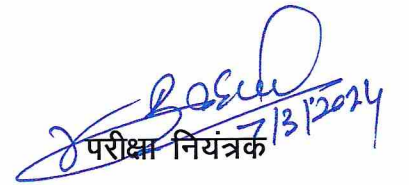 7/3/2024
परीक्षा नियंत्रक